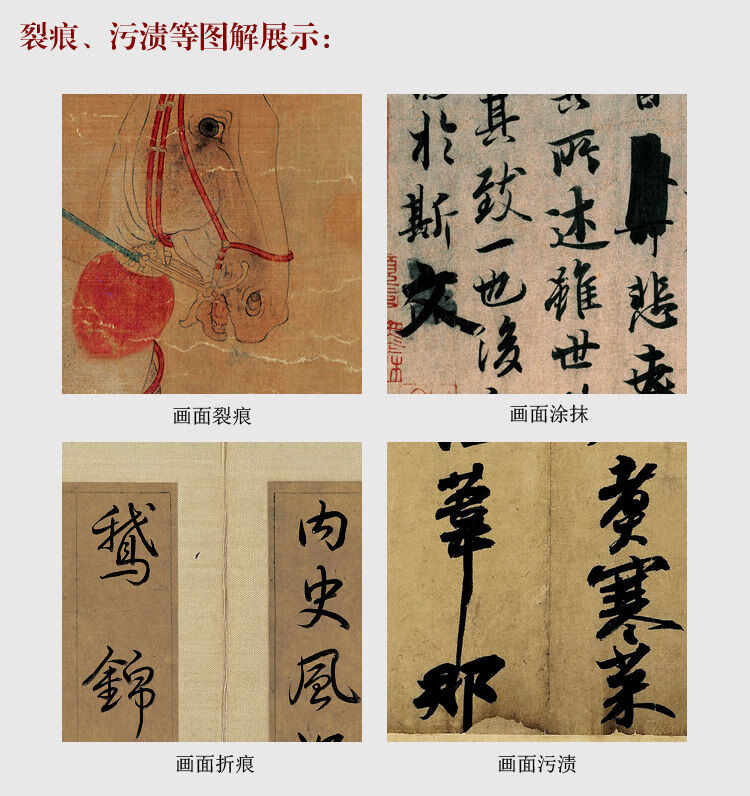 裂痕、污渍等图解展示：
悲夫
所述雖世
其致一也後
於斯文
画面裂痕
画面涂抹
内史風
鵝錦
煮寒菜
葦那
画面折痕
画面污渍